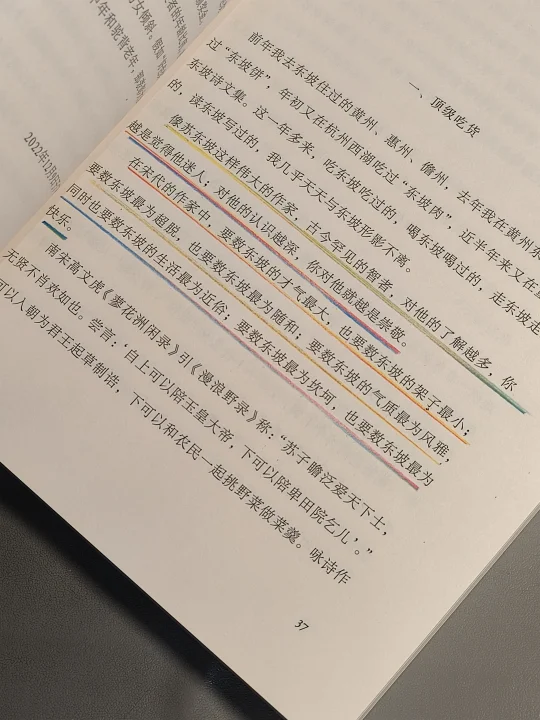 女倾斜。假如
年和驼背老年，耶
2022年12月6日
一、顶级吃货
前年我去东坡住过的黄州、惠州、儋州，去年我在黄州东
过“东坡饼”，年初又在杭州西湖吃过“东坡肉”，近半年来又在
东坡诗文集。这一年多来，吃东坡吃过的，喝东坡喝过的，走东坡走
的，读东坡写过的，我几乎天天与东坡形影不离。
像苏东坡这样伟大的作家，古今罕见的智者，对他的了解越多，你
越是觉得他迷人；对他的认识越深，你对他就越是崇敬。
在宋代的作家中，要数东坡的才气最大，也要数东坡的架子最小；
要数东坡最为超脱，也要数东坡最为随和；要数东坡的气质最为风雅，
同时也要数东坡的生活最为近俗；要数东坡最为坎坷，也要数东坡最为
快乐。
南宋高文虎《蓼花洲闲录》引《漫浪野录》称：“苏子瞻泛爱天下士，
无贤不肖欢如也。尝言：‘自上可以陪玉皇大帝，下可以陪卑田院乞儿’。”
可以入朝为君王起草制诰，下可以和农民一起挑野菜做菜羹。咏诗作
37